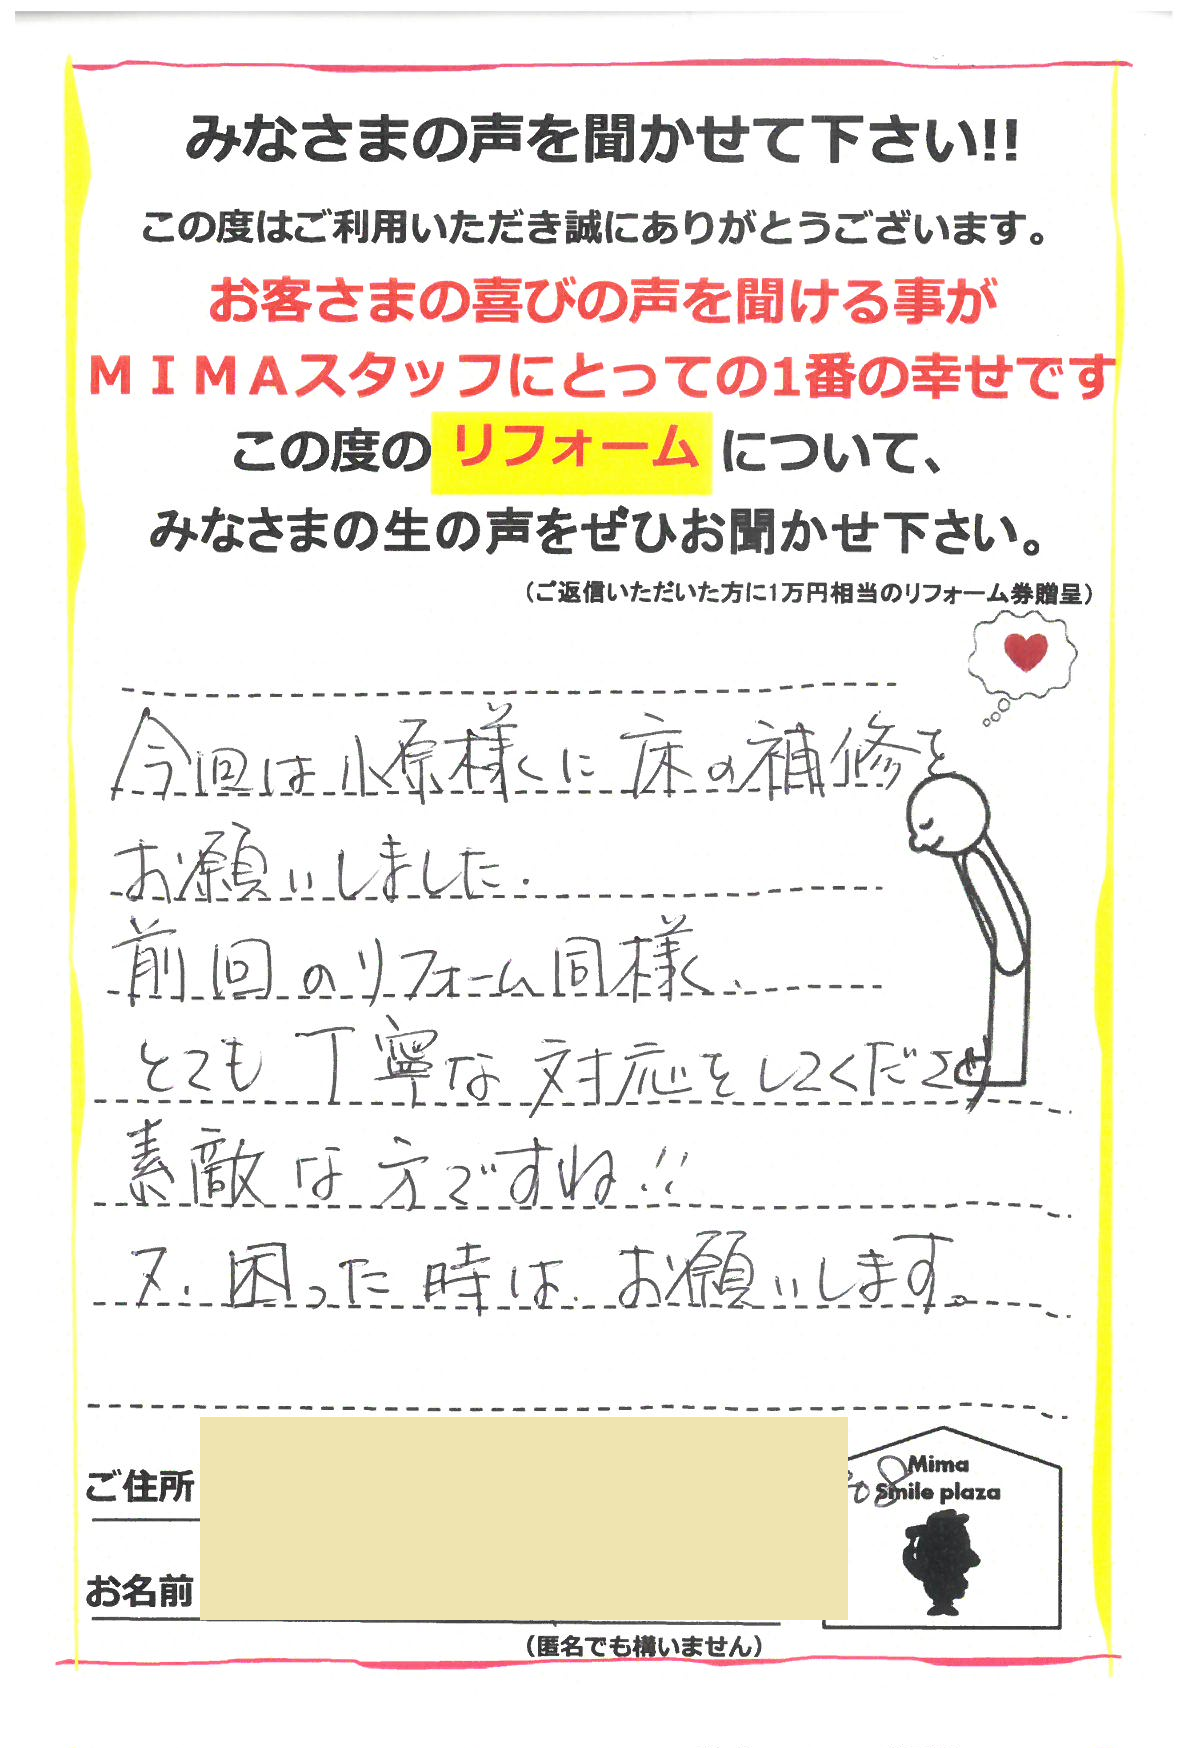 みなさまの声を聞かせて下さい!!
この度はご利用いただき誠にありがとうございます。
お客さまの喜びの声を聞ける事が
ＭＩＭＡスタッフにとっての1番の幸せです
この度の リフォーム について、
みなさまの生の声をぜひお聞かせ下さい。
（ご返信いただいた方に1万円相当のリフォーム券贈呈）
今回は小原様に床の補修を
お願いしました.
前回のリフォーム同様、
とても丁寧な対応をしてくださり
素敵な方ですね!!
又、困った時は、お願いします。
ご住所
Mima
Smile plaza
お名前
（匿名でも構いません）